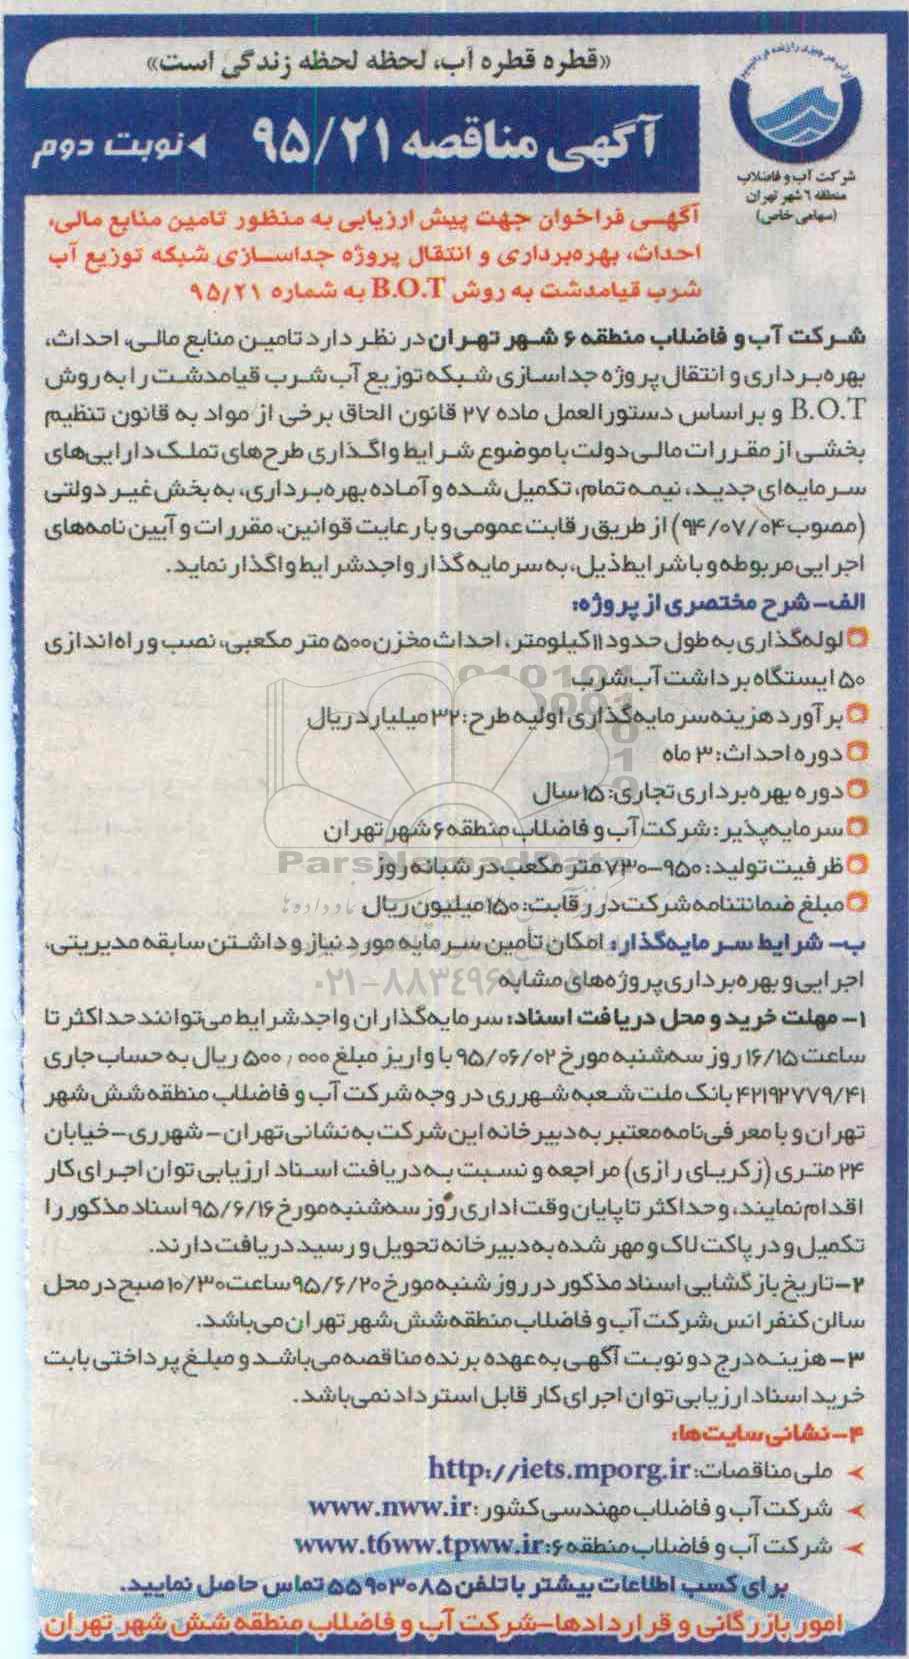 «قطره قطره آب، لحظه لحظه زندگی است»
آگهی مناقصه ۹۵/۲۱ نوبت دوم
شرکت آب و فاضلاب
منطقه ۶ شهر تهران
(سهامی خاص)
آگهی فراخوان جهت پیش ارزیابی به منظور تامین منابع مالی،
احداث، بهره‌برداری و انتقال پروژه جداسازی شبکه توزیع آب
شرب قیامدشت به روش B.O.T به شماره ۹۵/۲۱
شرکت آب و فاضلاب منطقه ۶ شهر تهران در نظر دارد تامین منابع مالی، احداث،
بهره‌برداری و انتقال پروژه جداسازی شبکه توزیع آب شرب قیامدشت را به روش
B.O.T و بر اساس دستورالعمل ماده ۲۷ قانون الحاق برخی از مواد به قانون تنظیم
بخشی از مقررات مالی دولت با موضوع شرایط واگذاری طرح‌های تملک دارایی‌های
سرمایه‌ای جدید، نیمه تمام، تکمیل شده و آماده بهره‌برداری، به بخش غیر دولتی
(مصوب ۹۴/۰۷/۰۴) از طریق رقابت عمومی و با رعایت قوانین، مقررات و آیین نامه‌های
اجرایی مربوطه و با شرایط ذیل، به سرمایه‌گذار واجد شرایط واگذار نماید.
الف- شرح مختصری از پروژه:
لوله‌گذاری به طول حدود ۱۱ کیلومتر، احداث مخزن ۵۰۰ متر مکعبی، نصب و راه‌اندازی
۵۰ ایستگاه برداشت آب شرب
برآورد هزینه سرمایه‌گذاری اولیه طرح: ۳۲ میلیارد ریال
دوره احداث: ۳ ماه
دوره بهره‌برداری تجاری: ۱۵ سال
سرمایه‌پذیر: شرکت آب و فاضلاب منطقه ۶ شهر تهران
ParsNamadData
ظرفیت تولید: ۹۵۰-۷۳۰ متر مکعب در شبانه روز
مبلغ ضمانتنامه شرکت در رقابت: ۱۵۰ میلیون ریال
ب- شرایط سرمایه‌گذار: امکان تأمین سرمایه مورد نیاز و داشتن سابقه مدیریتی،
اجرایی و بهره‌برداری پروژه‌های مشابه
۱- مهلت خرید و محل دریافت اسناد: سرمایه‌گذاران واجد شرایط می‌توانند حداکثر تا
ساعت ۱۶/۱۵ روز سه‌شنبه مورخ ۹۵/۰۶/۰۲ با واریز مبلغ ۵۰۰٫۰۰۰ ریال به حساب جاری
۴۲۱۹۲۷۷۹/۴۱ بانک ملت شعبه شهرری در وجه شرکت آب و فاضلاب منطقه شش شهر
تهران و با معرفی‌نامه معتبر به دبیرخانه این شرکت به نشانی تهران - شهرری - خیابان
۲۴ متری (زکریای رازی) مراجعه و نسبت به دریافت اسناد ارزیابی توان اجرای کار
اقدام نمایند، و حداکثر تا پایان وقت اداری روز سه‌شنبه مورخ ۹۵/۶/۱۶ اسناد مذکور را
تکمیل و در پاکت لاک و مهر شده به دبیرخانه تحویل و رسید دریافت دارند.
۲- تاریخ بازگشایی اسناد مذکور در روز شنبه مورخ ۹۵/۶/۲۰ ساعت ۱۰/۳۰ صبح در محل
سالن کنفرانس شرکت آب و فاضلاب منطقه شش شهر تهران می‌باشد.
۳- هزینه درج دو نوبت آگهی به عهده برنده مناقصه می‌باشد و مبلغ پرداختی بابت
خرید اسناد ارزیابی توان اجرای کار قابل استرداد نمی‌باشد.
۴- نشانی سایت‌ها:
ملی مناقصات: http://iets.mporg.ir
شرکت آب و فاضلاب مهندسی کشور: www.nww.ir
شرکت آب و فاضلاب منطقه ۶: www.t6ww.tpww.ir
برای کسب اطلاعات بیشتر با تلفن ۵۵۹۰۳۰۸۵ تماس حاصل نمایید.
امور بازرگانی و قراردادها-شرکت آب و فاضلاب منطقه شش شهر تهران